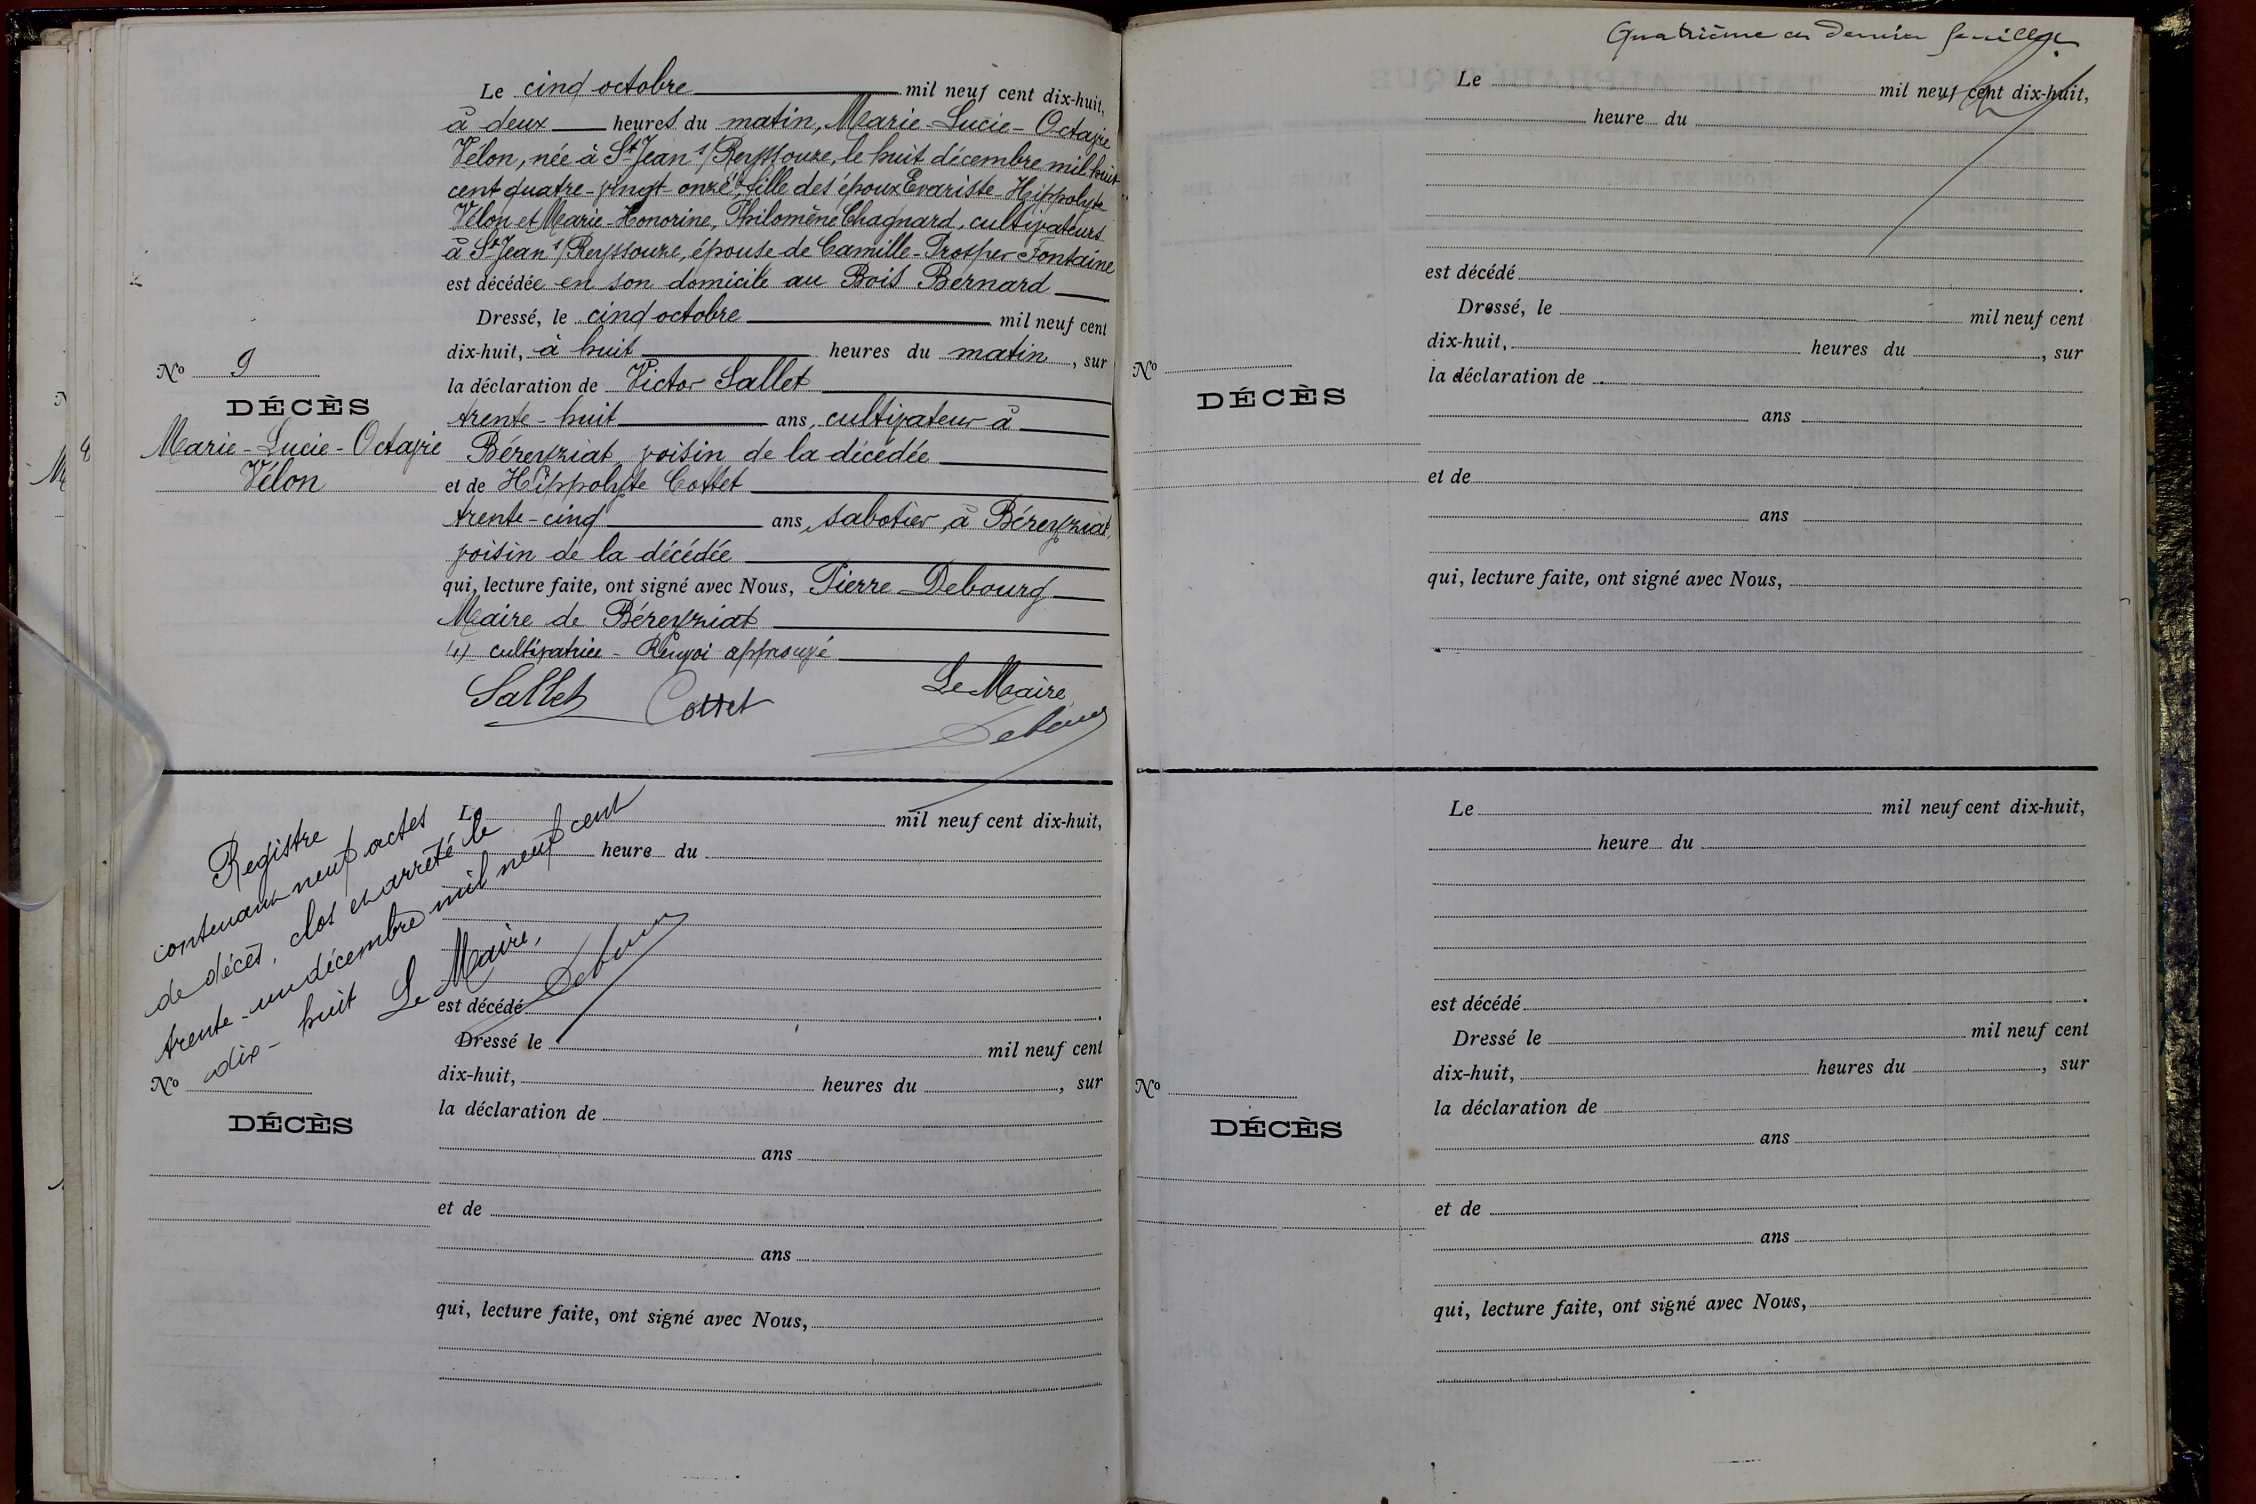 Le cinq octobre mil neuf cent dix-huit,
à deux heures du matin, Marie-Lucie-Octavie
Vélon, née à St Jean s/Reyssouze, le huit décembre mil huit
cent quatre-vingt onze (1), fille des époux Evariste-Hippolyte
Vélon et Marie-Honorine, Philomène Chagnard, cultivateurs
à St Jean s/Reyssouze, épouse de Camille-Prosper Fontaine
est décédée en son domicile au Bois Bernard
Dressé, le cinq octobre mil neuf cent
dix-huit, à huit heures du matin, sur
la déclaration de Victor Sallet
trente-huit ans, cultivateur à
Béreyziat, voisin de la décédée
et de Hippolyte Cottet
trente-cinq ans, sabotier, à Béreyziat,
voisin de la décédée
qui, lecture faite, ont signé avec Nous, Pierre Debourg
Maire de Béreyziat
(1) cultivatrice - Renvoi approuvé
Sallet Cottet Le Maire
Debourg
No 9
DÉCÈS
Marie-Lucie-Octavie
Vélon
Registre
contenant neuf actes
de décès, clos et arrêté le
trente-un décembre mil neuf cent
dix-huit Le Maire,
Debourg
Le mil neuf cent dix-huit,
heure du
est décédé .
Dressé le mil neuf cent
dix-huit, heures du , sur
la déclaration de
ans
et de
ans
qui, lecture faite, ont signé avec Nous,
No
DÉCÈS
Quatrième et dernier feuillet.
Le mil neuf cent dix-huit,
heure du
est décédé .
Dressé, le mil neuf cent
dix-huit, heures du , sur
la déclaration de
ans
et de
ans
qui, lecture faite, ont signé avec Nous,
No
DÉCÈS
Le mil neuf cent dix-huit,
heure du
est décédé .
Dressé le mil neuf cent
dix-huit, heures du , sur
la déclaration de
ans
et de
ans
qui, lecture faite, ont signé avec Nous,
No
DÉCÈS